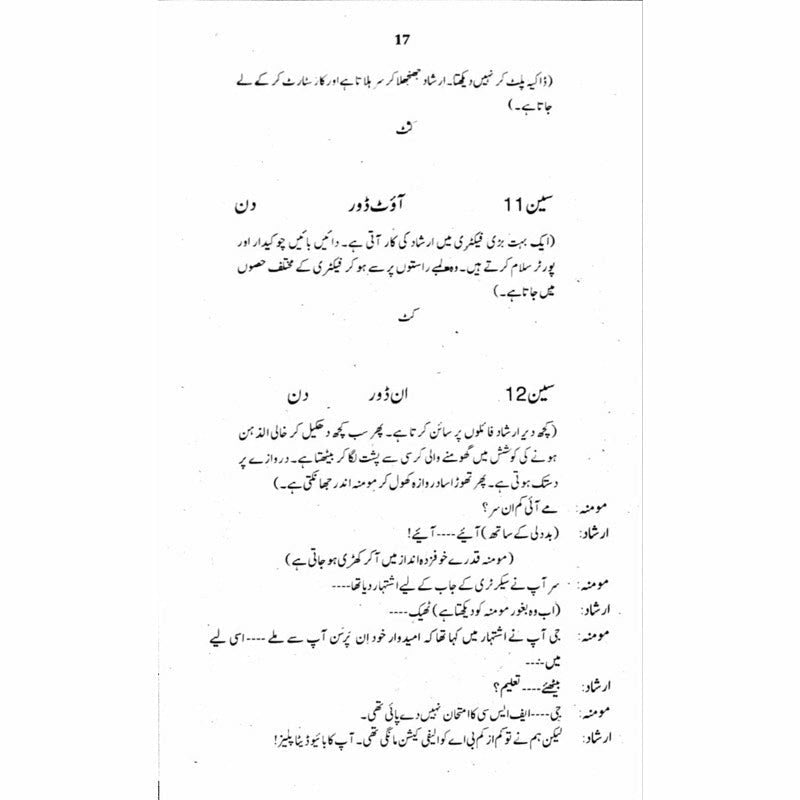 17
(ڈاکیہ پلٹ کر نہیں دیکھتا۔ ارشاد جھنجھلا کر سر ہلاتا ہے اور کار سٹارٹ کر کے لے
جاتا ہے۔)
کٹ
سین 11 آؤٹ ڈور دن
(ایک بہت بڑی فیکٹری میں ارشاد کی کار آتی ہے۔ دائیں بائیں چوکیدار اور
پورٹر سلام کرتے ہیں۔ وہ لمبے راستوں پر سے ہو کر فیکٹری کے مختلف حصوں
میں جاتا ہے۔)
کٹ
سین 12 ان ڈور دن
(کچھ دیر ارشاد فائلوں پر سائن کرتا ہے۔ پھر سب کچھ دھکیل کر خالی الذہن
ہونے کی کوشش میں گھومنے والی کرسی سے پشت لگا کر بیٹھتا ہے۔ دروازے پر
دستک ہوتی ہے۔ پھر تھوڑا سا دروازہ کھول کر مومنہ اندر جھانکتی ہے۔)
مومنہ: مے آئی کم ان سر؟
ارشاد: (بددلی کے ساتھ) آئیے---- آئیے!
(مومنہ قدرے خوفزدہ انداز میں آ کر کھڑی ہو جاتی ہے)
مومنہ: سر آپ نے سیکرٹری کے جاب کے لیے اشتہار دیا تھا----
ارشاد: (اب وہ بغور مومنہ کو دیکھتا ہے) ٹھیک----
مومنہ: جی آپ نے اشتہار میں کہا تھا کہ امیدوار خود اِن پَرسن آپ سے ملے---- اسی لیے
میں----
ارشاد: بیٹھئے---- تعلیم؟
مومنہ: جی---- ایف ایس سی کا امتحان نہیں دے پائی تھی۔
ارشاد: لیکن ہم نے تو کم از کم بی اے کوالیفی کیشن مانگی تھی۔ آپ کا بائیو ڈیٹا پلیز!